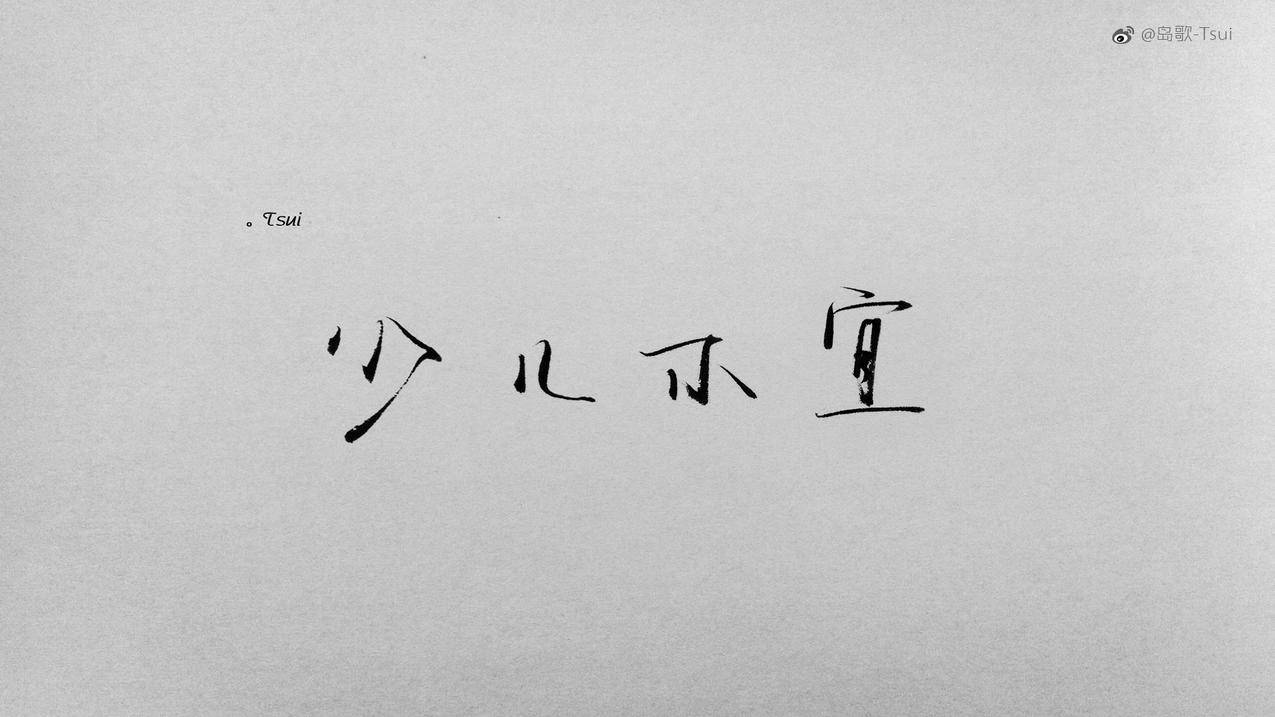 @岛歌-Tsui
。Tsui
少儿不宜